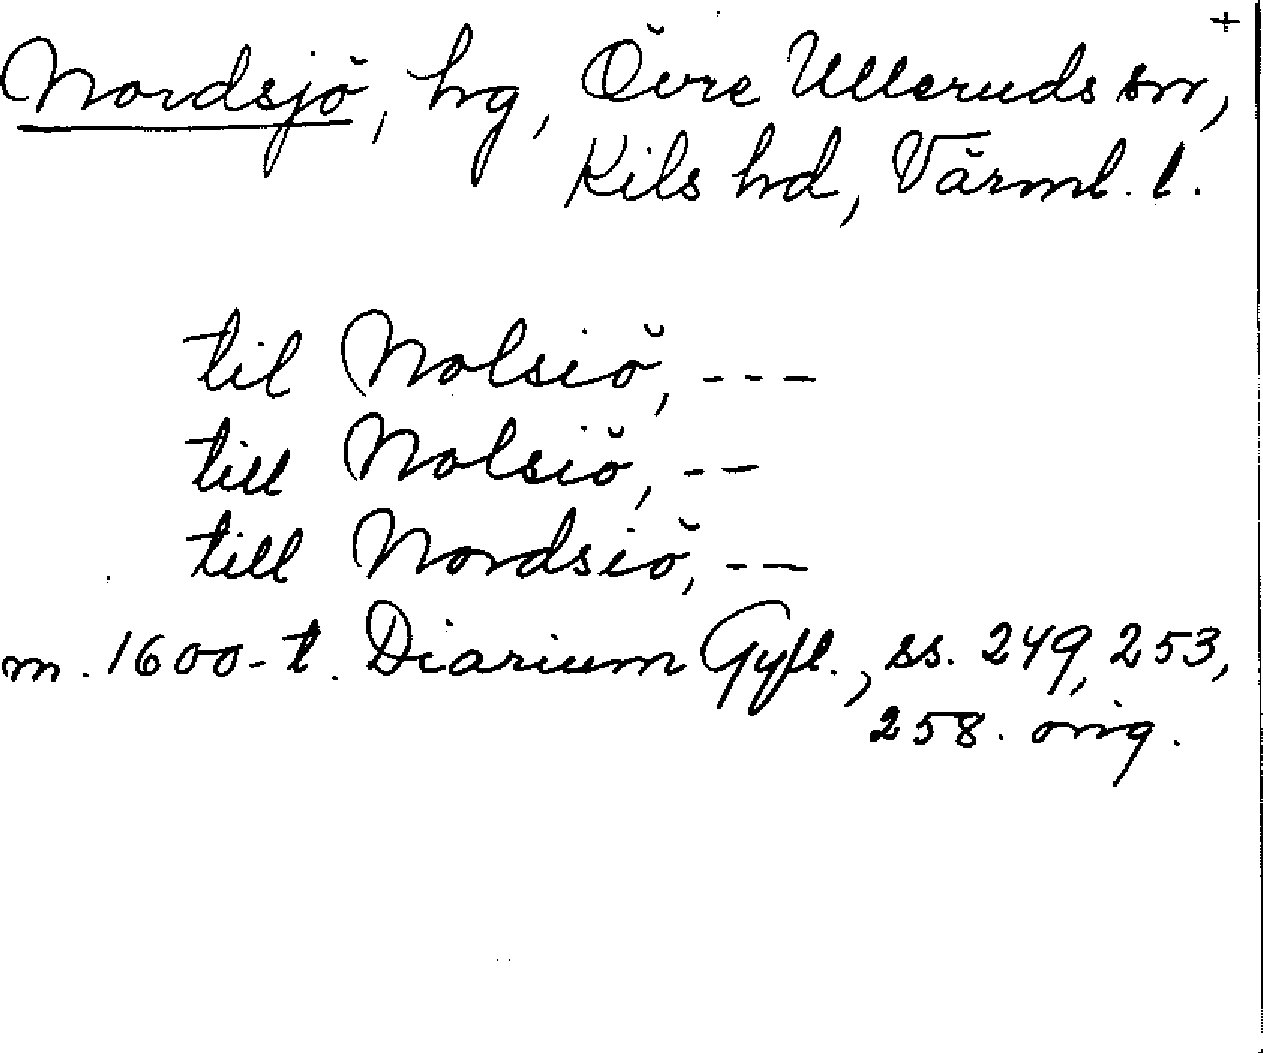 +
Nordsjö, hg, Övre Ulleruds sn,
Kils hd, Värml. l.
til Nolsiö, ---
till Nolsiö, --
till Nordsiö, --
m. 1600-t. Diarium Gyll., ss. 249, 253,
258. orig.